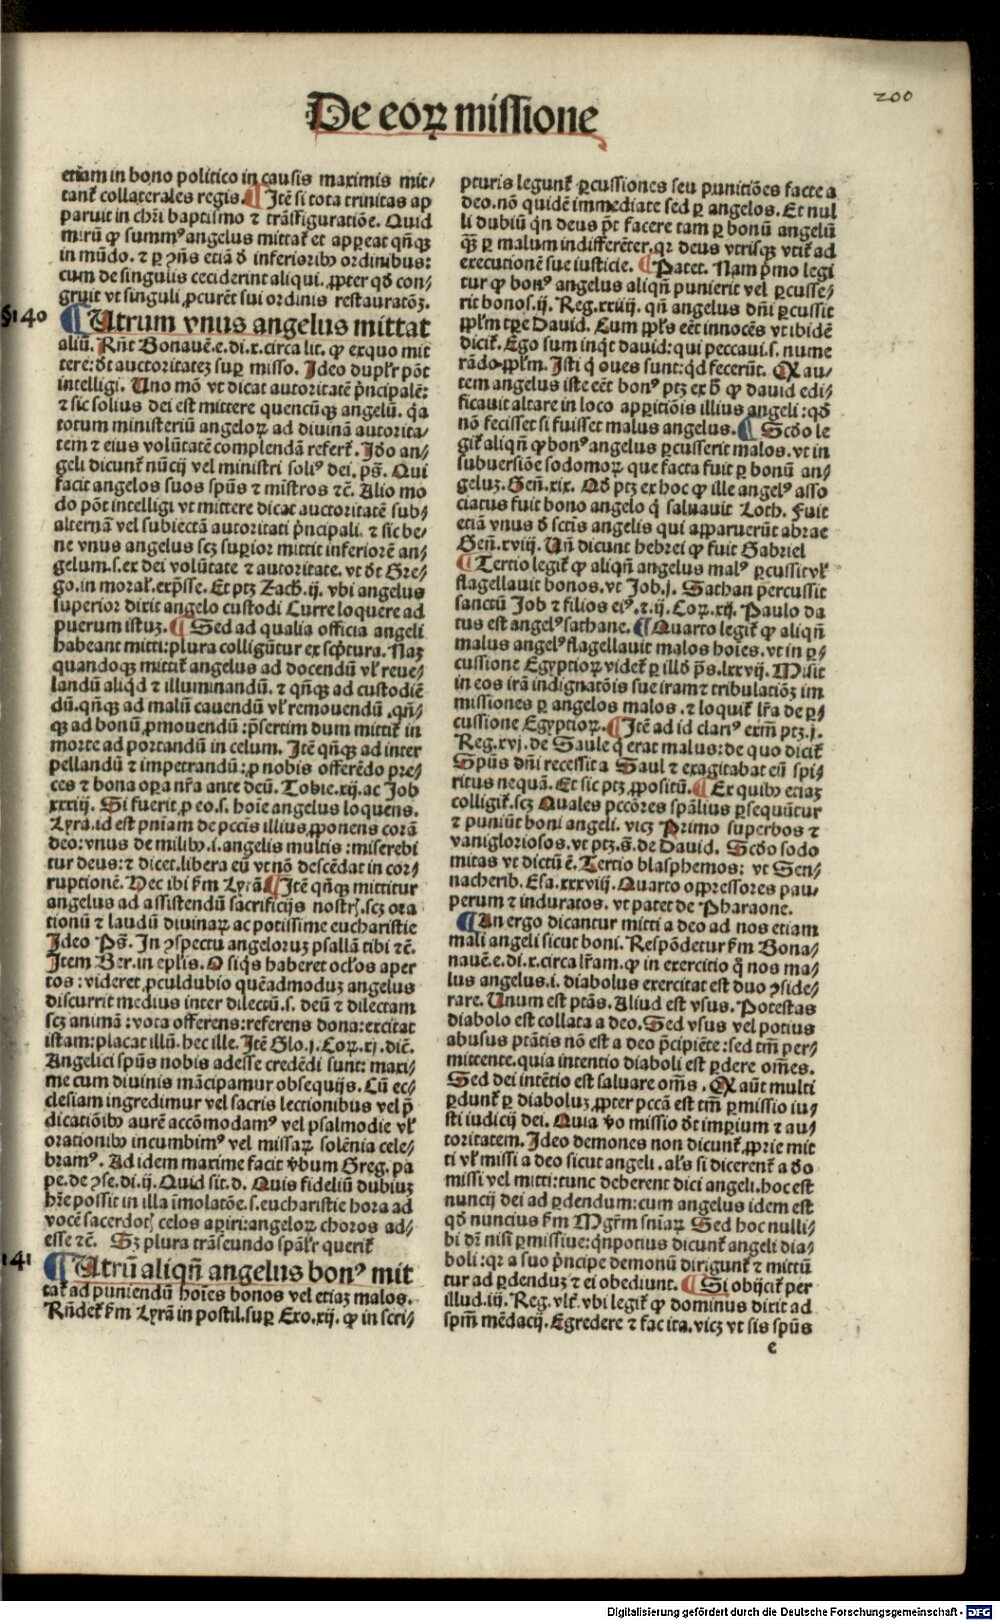 200
De eoꝝ missione
etiam in bono politico in causis maximis mit⸗
tanť collaterales regis. ¶ Itē si tota trinitas ap
paruit in chr̄i baptismo ⁊ trāsfiguratiōe. Quid
mirū ꝙ summꝰ angelus mittať et appareat qn̄qꝫ
in mūdo. ⁊ ꝑ ꝯn̄s etiā ď inferioribꝰ ordinibus:
cum de singulis ceciderint aliqui. ꝓpter qď con⸗
gruit vt singuli ꝓcurēt sui ordinis restauratōꝫ.
§140
¶ Utrum vnus angelus mittat
aliū. Rn̄t Bonauē. e. di. x. circa lit. ꝙ exquo mit
tere: ďt auctoritateꝫ suꝑ misso. Ideo duplr̄ pōt
intelligi. Uno mō vt dicat autoritatē pͥncipalē:
⁊ sic solius dei est mittere quencūqꝫ angelū. qͥa
totum ministeriū angeloꝝ ad diuinā autorita⸗
tem ⁊ eius volūtatē complendā referť. Iďo an⸗
geli dicunť nūcij vel ministri soliꝰ dei. ps̄. Qui
facit angelos suos spūs ⁊ mīstros ⁊c̄. Alio mo
do pōt intelligi vt mittere dicat auctoritatē sub⸗
alternā vel subiectā autoritati pͥncipali. ⁊ sic be⸗
ne vnus angelus scꝫ suꝑior mittit inferiorē an⸗
gelum. s. ex dei volūtate ⁊ autoritate. vt ďt Gre⸗
go. in moral̕. exp̄sse. Et ptꝫ Zach. ij. vbi angelus
superior dixit angelo custodi Curre loquere ad
puerum istuꝫ. ¶ Sed ad qualia officia angeli
habeant mitti: plura colligūtur ex scpͥtura. Naꝫ
quandoqꝫ mittiť angelus ad docendū vl̕ reue⸗
landū aliqͥd ⁊ illuminandū. ⁊ qn̄qꝫ ad custodiē
dū. qn̄qꝫ ad malū cauendū vl̕ remouendū. qn̄⸗
qꝫ ad bonū ꝓmouendū: pͥsertim dum mittiť in
morte ad portandū in celum. Itē qn̄qꝫ ad inter
pellandū ⁊ impetrandū: ꝓ nobis offerēdo pre⸗
ces ⁊ bona oꝑa nr̄a ante deū. Tobie. xij. ac Job
xxxiij. Si fuerit ꝓ eo. s. hoīe angelus loquens.
Lyra. id est pnīam de pccīs illius ꝓponens corā
deo: vnus de milibꝰ. i. angelis multis: miserebi
tur deus: ⁊ dicet. libera eū vt nō descēdat in cor⸗
ruptionē. Hec ibi ẜm Lyrā ¶ Itē qn̄qꝫ mittitur
angelus ad assistendū sacrificijs nostrꝭ. scꝫ ora
tionū ⁊ laudū diuinaꝝ ac potissime eucharistie
Ideo Ps̄. In ꝯspectu angeloruꝫ psallā tibi ⁊c̄.
Item Ber. in epl̕is. O siqͥs haberet ocl̕os aper
tos: videret ꝓculdubio quēadmoduꝫ angelus
discurrit medius inter dilectū. s. deū ⁊ dilectam
scꝫ animā: vota offerens: referens dona: excitat
istam: placat illū. hec ille. Itē Glo. j. Coꝝ. xj. dic̄.
Angelici spūs nobis adesse credēdi sunt: maxi⸗
me cum diuinis mācipamur obsequijs. Cū ec⸗
clesiam ingredimur vel sacris lectionibus vel pͥ
dicatiōibꝰ aurē accōmodamꝰ vel psalmodie vl̕
orationibꝰ incumbimꝰ vel missaꝝ solēnia cele⸗
bramꝰ. Ad idem maxime facit v̄bum Greg. pa
pe. de ꝯse. di. ij. Quid sit. d. Quis fideliū dubiuꝫ
hr̄e possit in illa īmolatōe. s. eucharistie hora ad
vocē sacerdotꝭ celos aꝑiri: angeloꝝ choros ad⸗
esse ⁊c̄. Sꝫ plura trāseundo spāl̕r queriť
141
¶ Utrū aliqn̄ angelus bonꝰ mit
tať ad puniendū hoīes bonos vel etiaꝫ malos.
Rn̄deť ẜm Lyrā in postil. suꝑ Exo. xij. ꝙ in scri⸗
pturis legunť ꝑcussiones seu punitiōes facte a
deo. nō quidē immediate sed ꝑ angelos. Et nul
li dubiū qn̄ deus pōt facere tam ꝑ bonū angelū
qͣꝫ ꝑ malum indifferēter. qꝛ deus vtrisqꝫ vtiť ad
executionē sue iusticie. ¶ Patet. Nam pͥmo legi
tur ꝙ bonꝰ angelus aliqn̄ punierit vel ꝑcusse⸗
rit bonos. ij. Reg. xxiiij. qn̄ angelus dn̄i ꝑcussit
ppl̕m tꝑe Dauid. Cum ppl̕s eēt innocēs vt ibidē
diciť. Ego sum inqͥt dauid: qui peccaui. s. nume
rādo ppl̕m. Isti qͥ oues sunt: qͥd fecerūt. Q̕ au⸗
tem angelus iste eēt bonꝰ ptꝫ ex ħ ꝙ dauid edi⸗
ficauit altare in loco apꝑitiōis illius angeli: qď
nō fecisset si fuisset malus angelus. ¶ Scďo le
giť aliqn̄ ꝙ bonꝰ angelus ꝑcusserit malos. vt in
subuersiōe sodomoꝝ que facta fuit ꝑ bonū an⸗
geluꝫ. Gen̄. xix. Qď ptꝫ ex hoc ꝙ ille angelꝰ asso
ciatus fuit bono angelo qͥ saluauit Loth. Fuit
etiā vnus ď scīis angelis qui apparuerūt abrae
Gen̄. xviij. Un̄ dicunt hebrei ꝙ fuit Gabriel
¶ Tertio legiť ꝙ aliqn̄ angelus malꝰ ꝑcussit vl̕
flagellauit bonos. vt Job. j. Sathan percussit
sanctū Job ⁊ filios eiꝰ. ⁊. ij. Coꝝ. xij. Paulo da
tus est angelꝰ sathane. ¶ Quarto legiť ꝙ aliqn̄
malus angelꝰ flagellauit malos hoīes. vt in ꝑ⸗
cussione Egyptioꝝ videť ꝑ illď ps̄. lxxvij. Misit
in eos irā indignatōis sue iram ⁊ tribulatiōꝫ im
missiones ꝑ angelos malos. ⁊ loquiť lr̄a de ꝑ⸗
cussione Egyptioꝝ. ¶ Itē ad id clariꝰ exm̄ ptꝫ. j.
Reg. xvj. de Saule qͥ erat malus: de quo diciť
Spūs dn̄i recessit a Saul ⁊ exagitabat eū spi⸗
ritus nequā. Et sic ptꝫ ꝓpositū. ¶ Ex quibꝰ etiaꝫ
colligiť. scꝫ Quales pccōres spāl̕ius ꝑsequūtur
⁊ puniūt boni angeli. vicꝫ Primo superbos ⁊
vanigloriosos. vt ptꝫ. s̄. de Dauid. Scďo sodo
mitas vt dictū ē. Tertio blasphemos: vt Sen⸗
nacherib. Esa. xxxviij. Quarto oppressores pau⸗
perum ⁊ induratos. vt patet de Pharaone.
¶ An ergo dicantur mitti a deo ad nos etiam
mali angeli sicut boni. Respōdetur ẜm Bona⸗
nauē. e. di. x. circa lr̄am. ꝙ in exercitio qͦ nos ma⸗
lus angelus. i. diabolus exercitat est duo ꝯside⸗
rare. Unum est ptās. Aliud est vsus. Potestas
diabolo est collata a deo. Sed vsus vel potius
abusus ptātis nō est a deo pͥcipiēte: sed tm̄ per⸗
mittente. quia intentio diaboli est ꝑdere om̄es.
Sed dei intētio est saluare om̄s. Q̕ aūt multi
ꝑdunť ꝑ diaboluꝫ ꝓpter pccā est tm̄ ꝑmissio iu⸗
sti iudicij dei. Quia v̄o missio ďt imꝑium ⁊ au⸗
toritatem. Ideo demones non dicunť ꝓprie mit
ti vl̕ missi a deo sicut angeli. al̕s si dicerenť a ďo
missi vel mitti: tunc deberent dici angeli. hoc est
nuncij dei ad ꝑdendum: cum angelus idem est
qď nuncius ẜm Mgr̄m snīaꝝ Sed hoc nulli⸗
bi dr̄ nisi ꝑmissiue: qn̄potius dicunť angeli dia⸗
boli: qꝛ a suo pͥncipe demonū diriguntur ⁊ mittū
tur ad ꝑdenduꝫ ⁊ ei obediunt. ¶ Si obijciť per
illud. iij. Reg. vlt̕. vbi legiť ꝙ dominus dixit ad
spm̄ mēdacij. Egredere ⁊ fac ita. vicꝫ vt sis spūs
e
Digitalisierung gefördert durch die Deutsche Forschungsgemeinschaft - DFG